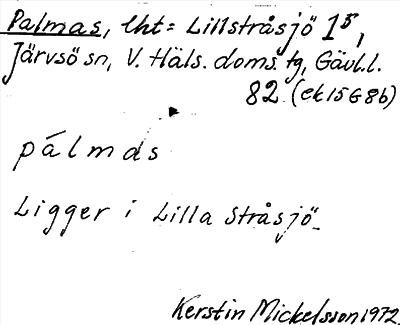 Palmas, lht = Lillstråsjö 1⁵,
Järvsö sn, V. Häls. doms. tg, Gävl. l.
82 (ek 15 G 8b)
pálmas
Ligger i Lilla Stråsjö.
Kerstin Mickelsson 1972.